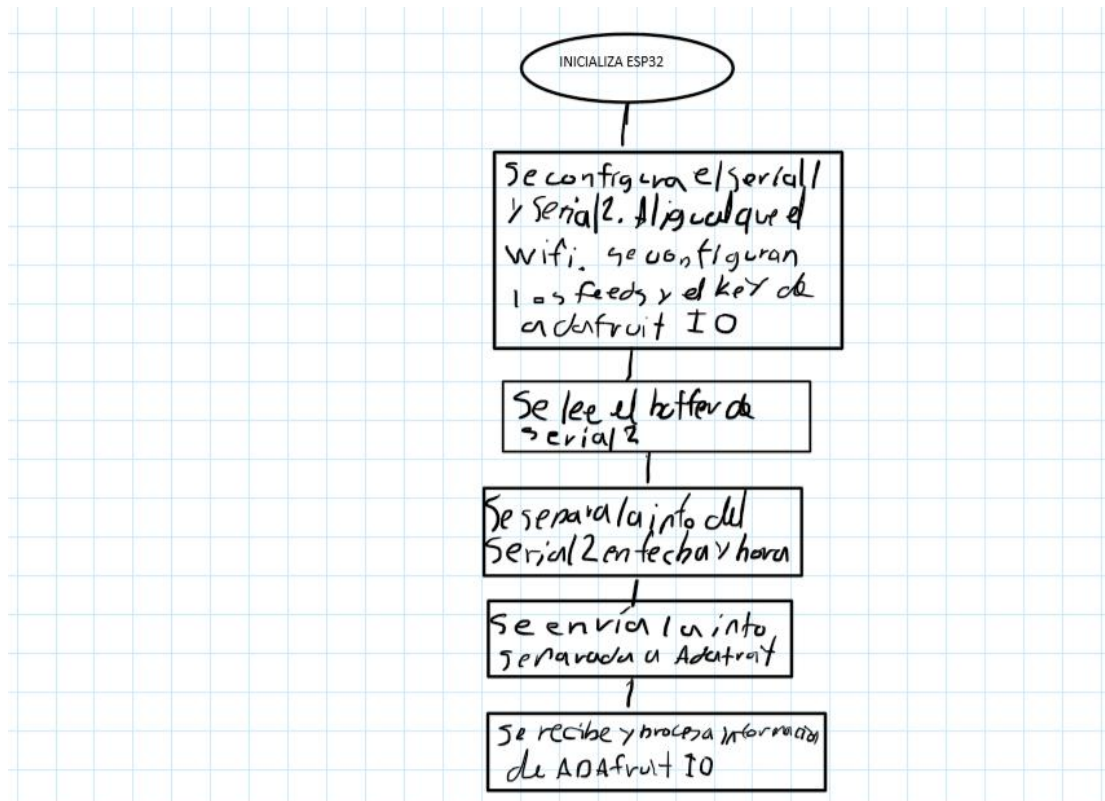 INICIALIZA ESP32
Se configura el serial 1
y Serial 2. Al igual que el
wifi. se configuran
los feeds y el key de
adafruit IO
Se lee el buffer de
serial 2
Se separa la info del
Serial 2 en fecha y hora
Se envía la info
separada a Adafruit
Se recibe y procesa información
de ADAfruit IO